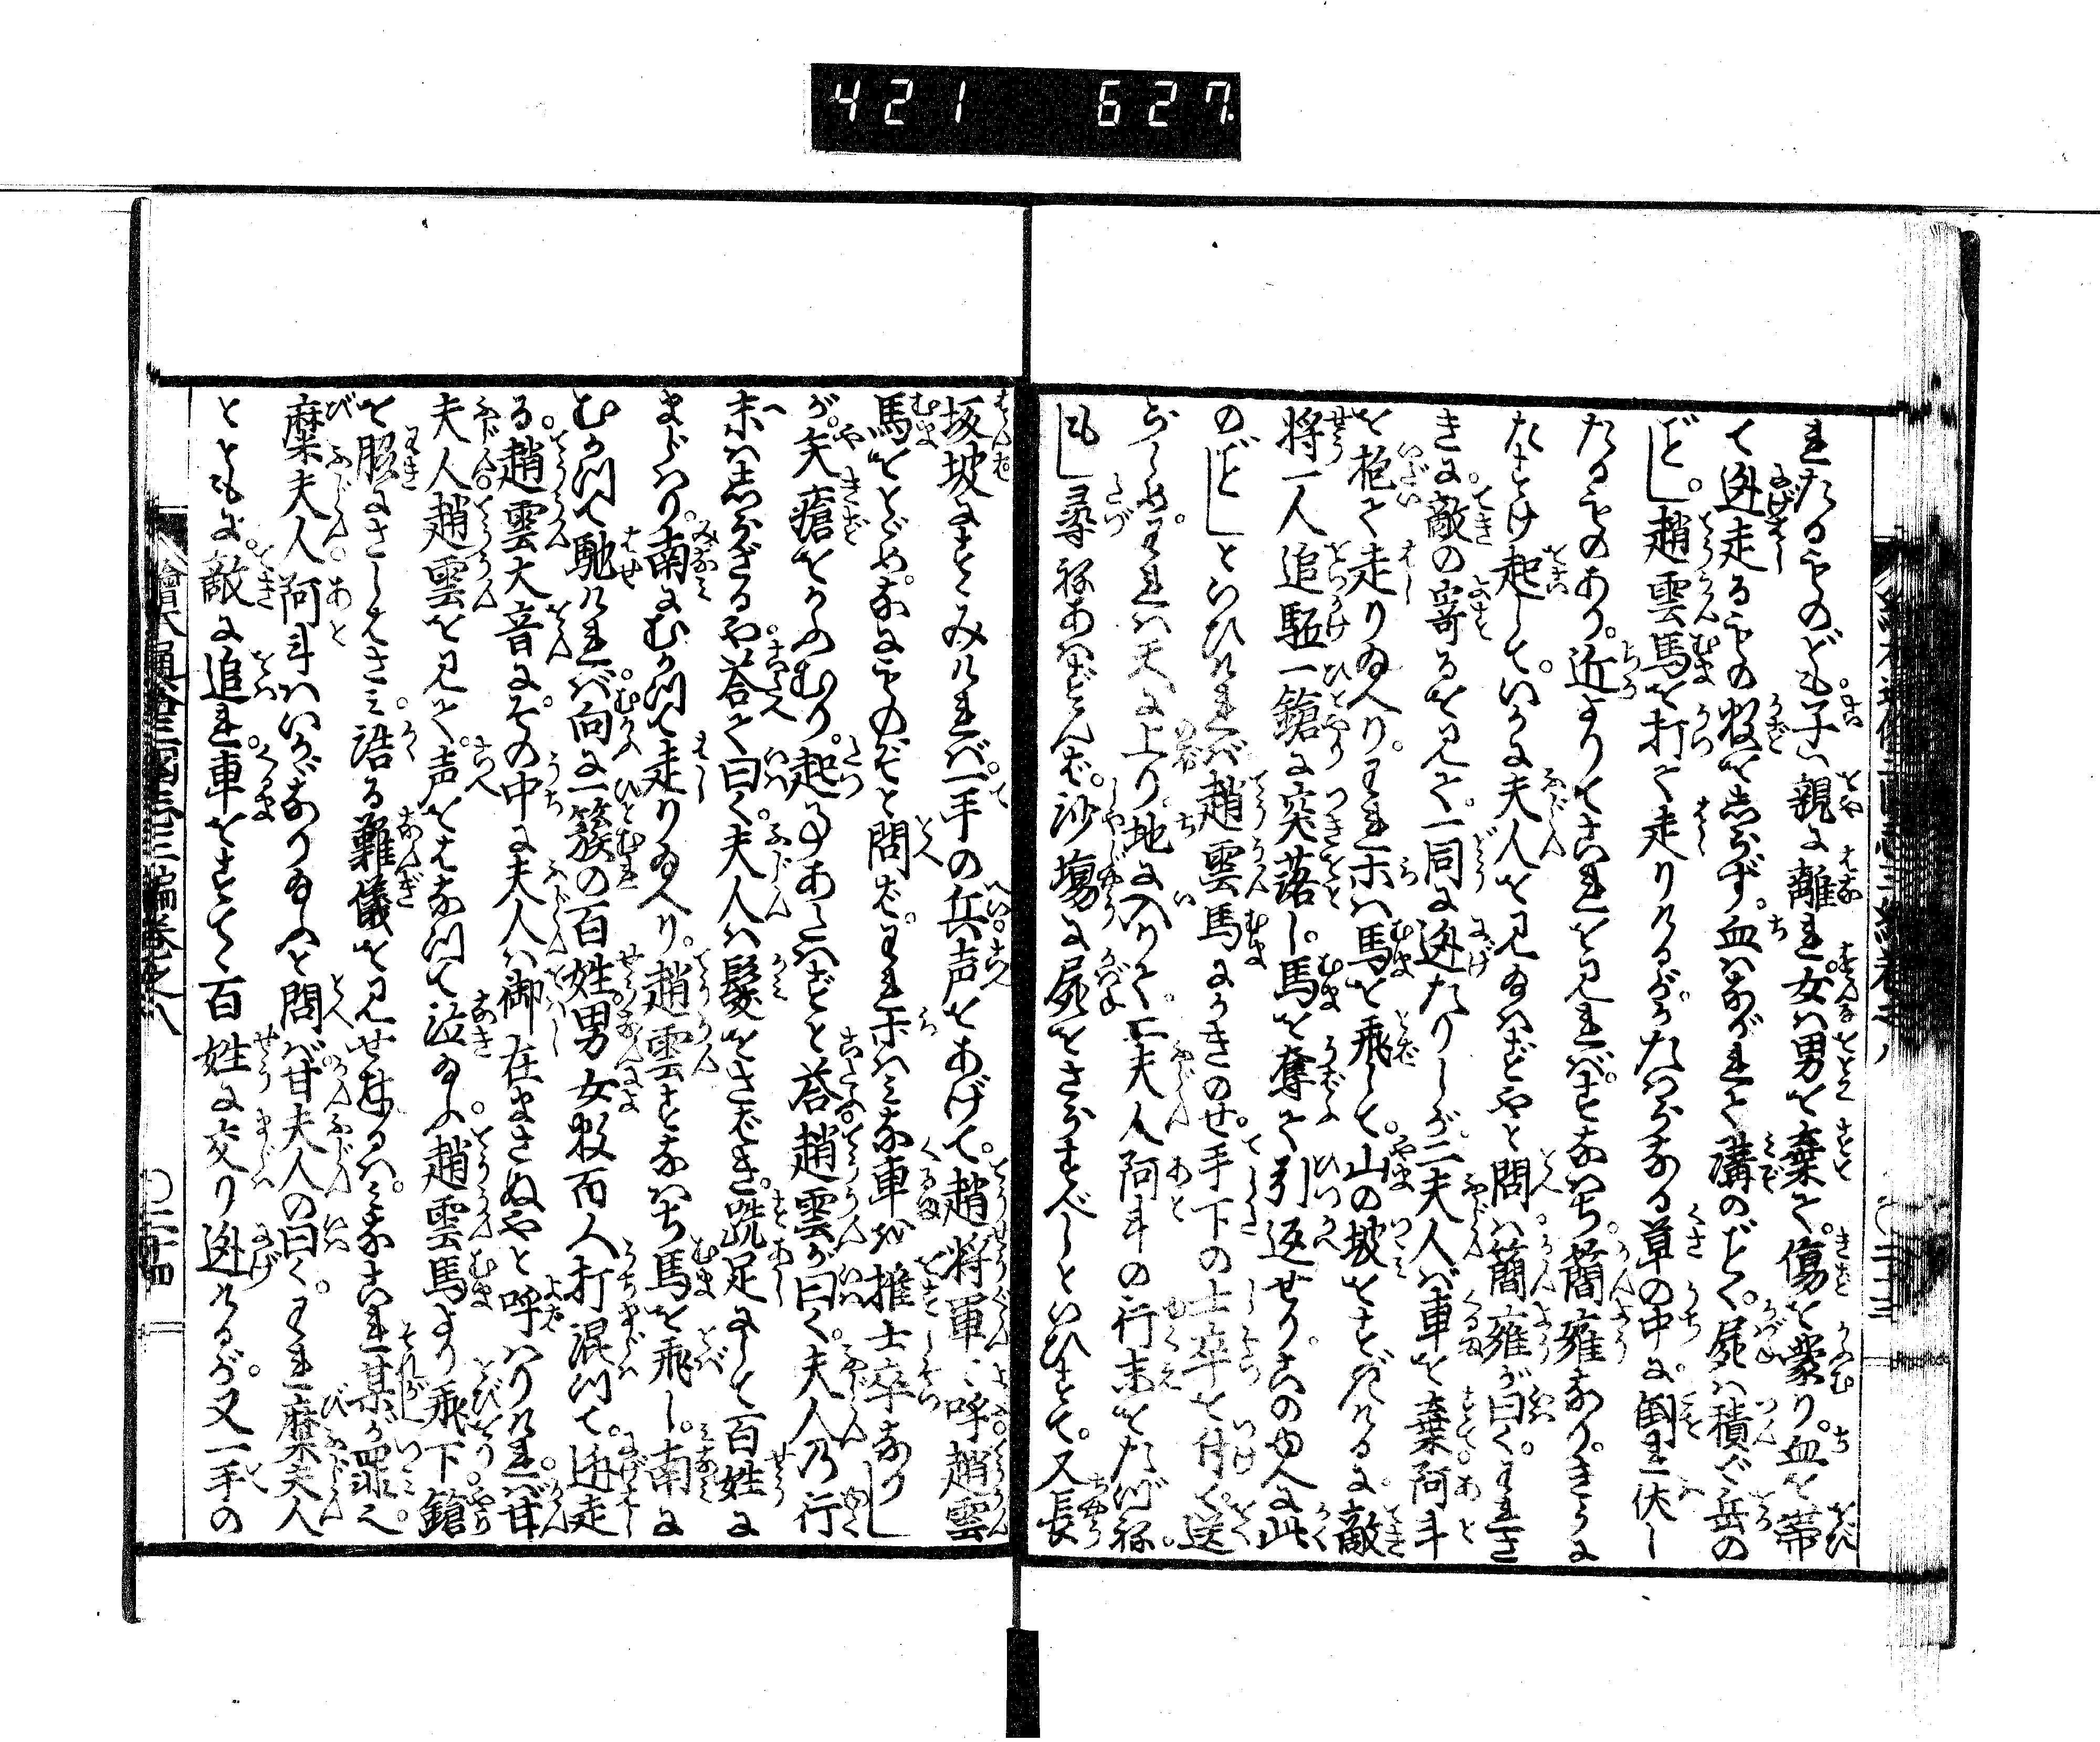 421 627
れたるもののども子ハ親に離れ女ハ男を棄て。傷を蒙り。血を帯
て迯走るもの数を志らず。血ハながれて溝のごとく。屍ハ積で岳の
ごとし。趙雲馬を打て走りけるが。かたハらなる草の中に。倒れ伏し
たるものあり。近よりてこれを見れバ。すなハち。簡雍なり。きうに
たすけ起して。いかに夫人を見給ハずやと問ハ。簡雍が曰く。われさ
きに。敵の寄るを見て。一同に迯たりしが。二夫人ハ車を棄阿斗
を抱て走り給へり。われホハ馬を飛して。山の坡をすぎけるに。敵
将一人追駈一鎗に突落し。馬を奪て引返せり。このゆへに此
のごとしといひけれバ趙雲馬にかきのせ。手下の士卒を付て送
らしめ。われハ天に上り。地に入りて。二夫人阿斗の行末をたづね。
もし尋ねあハずんば。沙場に屍をさらすべしといひすて。又長
坂坡にすすみければ。一手の兵声をあげて。趙将軍〻〻呼趙雲
馬をとどめ。なにものぞと問ば。われホハみな車を推士卒なり
が。矢瘡をかふむり。起事あたハずと答趙雲が曰く。夫人乃行
末ハ志らざるや。答て曰く。夫人ハ髪をさばき。跣足にして百姓に
まじハり。南にむかつて走り給へり。趙雲すなハち馬を飛し。南に
むかつて馳ければ。向に一簇の百姓男女数百人打混つて。迯走
る。趙雲大音に。その中に夫人ハ御在まさぬやと呼ハりければ。甘
夫人趙雲を見て。声をはなつて泣給ふ。趙雲馬より飛下鎗
を脇にさしはさミ。詣る難儀を見せ奉るハ。みなこれ某が罪也。
麋夫人阿斗ハいかがなり給ふと問ば甘夫人の曰く。われ麋夫人
とともに。敵に追れ。車をすてて百姓に交り迯けるが。又一手の
繪本通俗三國志三編巻之八 〇二十四